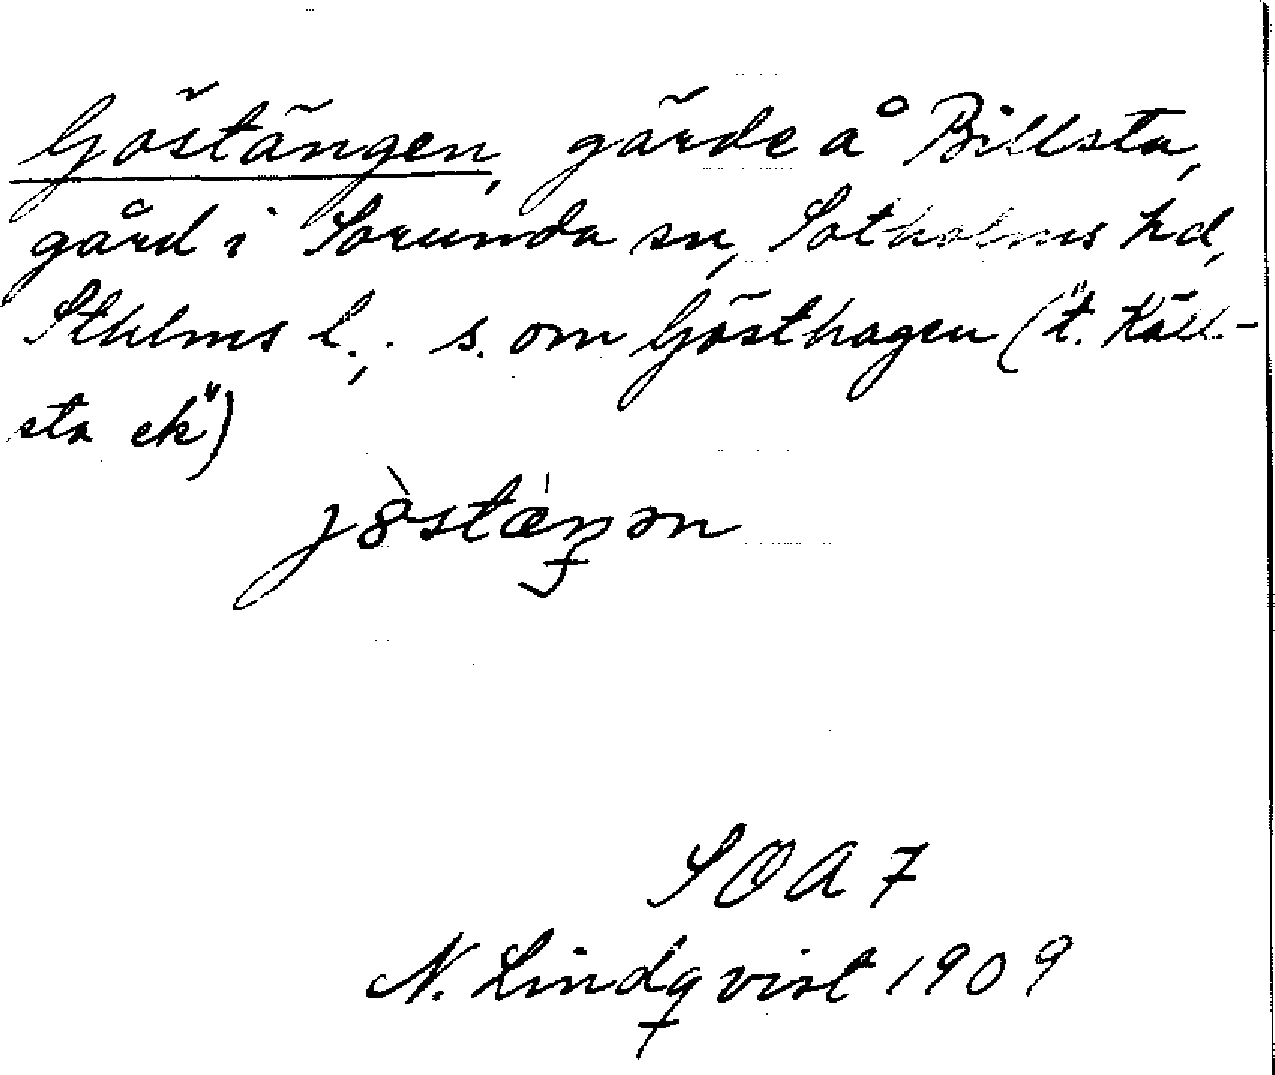 Göstängen, gärde å Billsta,
gård i Sorunda sn, Sotholms hd,
Sthlms l.; s. om Gösthagen ("t. Käll-
sta ek")
SOA 7
N. Lindqvist 1909